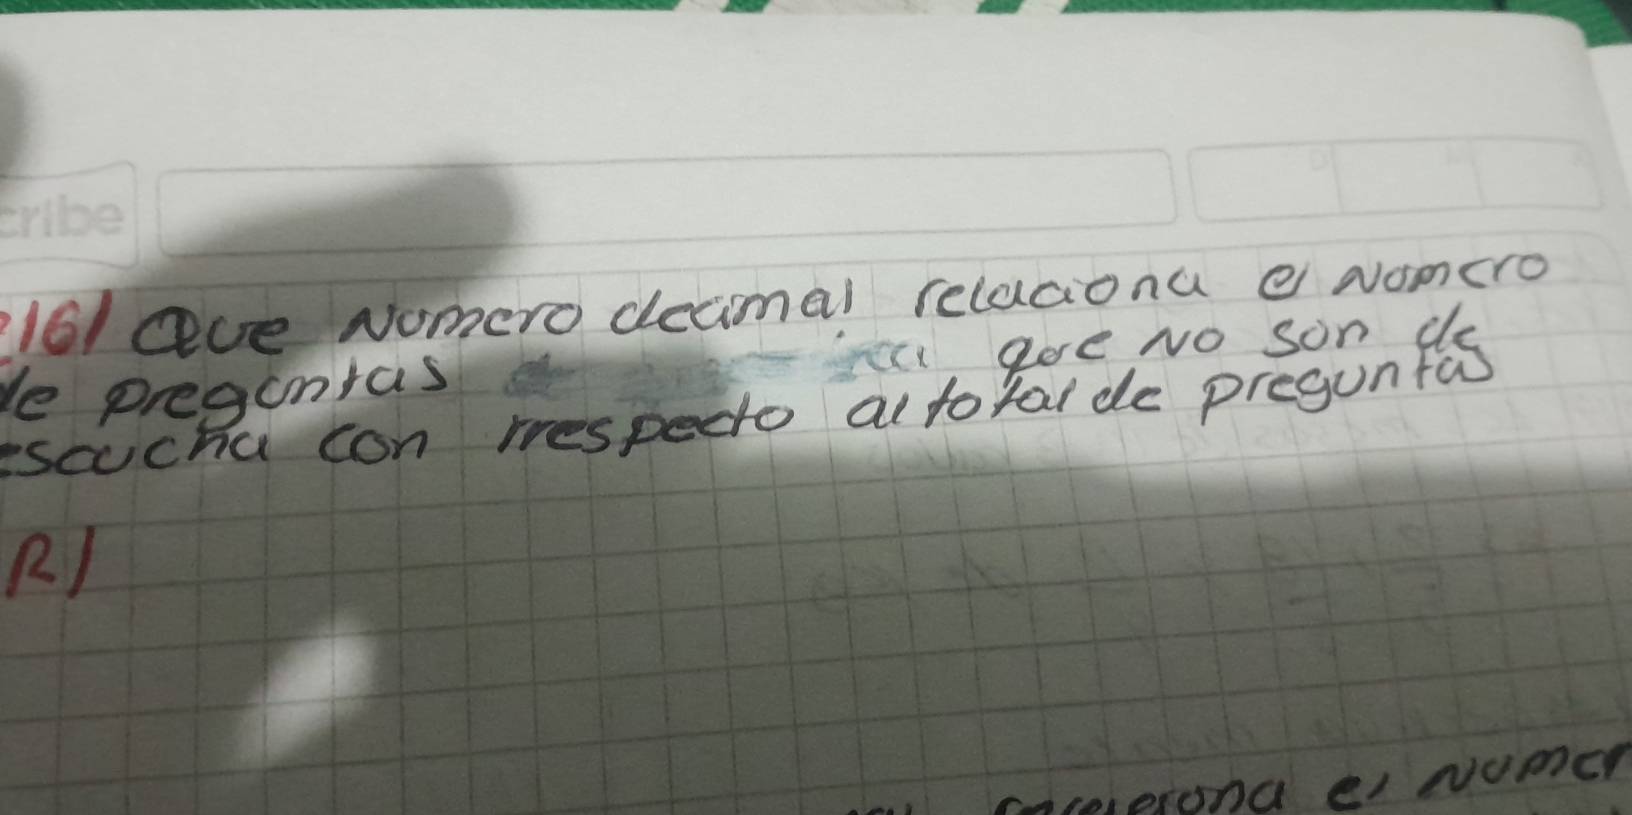 cribe
16) Que Numero decimal relaciona el Numero
de preguntas que No son de
escucha con rrespecto al total de preguntas
R)
el Numer